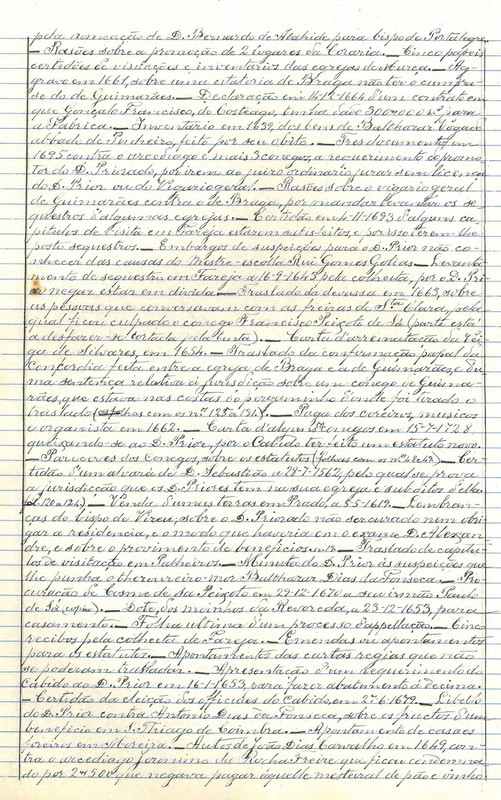 pela nomeação de D. Bernardo de Atahide para bispo de Portalegre.
— Rasões sobre a promoção de 2 lugares da Coraria. — Cinco papeis
certidões de visitações e inventarios das egrejas de Murça. — Ag-
gravo em 1661, sobre uma citatoria de Braga não ter o cumpra-
se do de Guimarães. — Declaração em 4-12-1664 d'um contrato em
que Gonçalo Francisco, de Costeago, tinha dado 300$000 rs. para
a Fabrica. — Inventario em 1639 dos bens de Balthazar
abbade de Pinheiro, feito por seu obito. — Tres documentos em
1695 contra o arcediago e mais 3 conegos, a requerimento do promo-
tor do D. Priorado, por irem ao juizo ordinario jurar sem licença
do D. Prior ou do Vigario geral. — Rasões sobre o vigario geral
de Guimarães contra o de Braga, por mandar levantar os se-
questros d'algumas egrejas. — Certidão em 4-11-1693 d'alguns ca-
pitulos de visita em Fareja estarem satisfeitos, e por isso terem-lhe
posto sequestros. — Embargos de suspeições para o D. Prior não co-
nhecer das causas do Mestre-escola Rui Gomes Golias. — Levanta-
mento de sequestro em Fareja a 16-9-1643 pela colheita, por o D. Pri-
or negar estar em divida. — Traslado da devassa em 1663, sobre
as pessoas que conversavam com as freiras de Sta Clara, pela
qual ficou culpado o conego Francisco Peixoto de Sá (parte está
a desfazer-se cortada pela tinta). — Carta d'arrematação da Vei-
ga de Silvares, em 1654. — Traslado da confirmação papal da
Concordia feita entre a egreja de Braga e a de Guimarães e du-
ma sentença relativa á jurisdicção sobre um conego de Guima-
rães, que estava nas costas do pergaminho d'onde foi tirado o
traslado (folhas com os nos 125 a 131). — Paga dos coreiros, musicos
e organista em 1662. — Carta d'alguns conegos em 15-7-1728
queixando-se ao D. Prior, por o Cabido ter feito um estatuto novo.
— Pareceres dos conegos, sobre os estatutos (folhas com os nos 48 e 49). — Cer-
tidão d'um alvará de D. Sebastião a 29-7-1562, pelo qual se prova
a jurisdicção que os D. Priores tem na sua egreja e subditos d'ella
(fol. 120 a 124). — Venda d'umas terras em Prado, a 5-5-1619. — Lembran-
ças do bispo de Vizeu, sobre o D. Priorado não ser curado nem obri-
gar a residencia, e o modo que haveria em o exame D. Alexan-
dre, e sobre o provimento de beneficios. — Traslado de capitu-
los de visitação em Palheiros. — Minuta do D. Prior ás suspeições que
lhe punha o thezoureiro-mor Balthazar Dias da Fonseca. — Pro-
curação de Cosme de Sá Peixoto em 29-12-1670 a seu irmão Paulo
de Sá (copia). — Dote, dos moinhos da Revoreda, a 23-12-1653, para
casamento. — Folha ultima d'um processo d'appellação. — Cinco
recibos pela colheita de Fareja. — Emendas ou apontamentos
para os estatutos. — Apontamentos das cartas regias que não
se poderam trasladar. — Apresentação d'um requerimento do
Cabido ao D. Prior em 16-1-1653, para fazer abatimento á decima.
— Certidão da eleição dos officiaes do Cabido, em 27-6-1679. — Libello
do D. Prior contra Antonio Dias da Fonseca, sobre os fructos d'um
beneficio em S. Thiago de Coimbra. — Apontamento de casaes
foreiros em Moreira. — Autos de João Dias Carvalho em 1649, con-
tra o arcediago Jeronimo da Rocha Freire que ficou condemna-
do por 2$500 que negava pagar áquelle mesteiral de pão e vinho